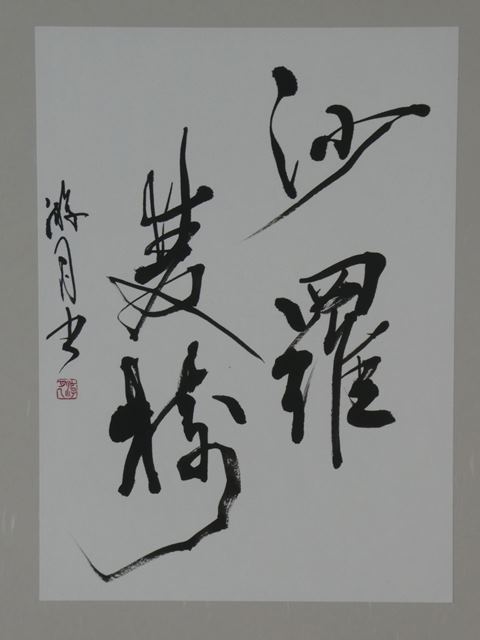 沙羅
双樹
游月書